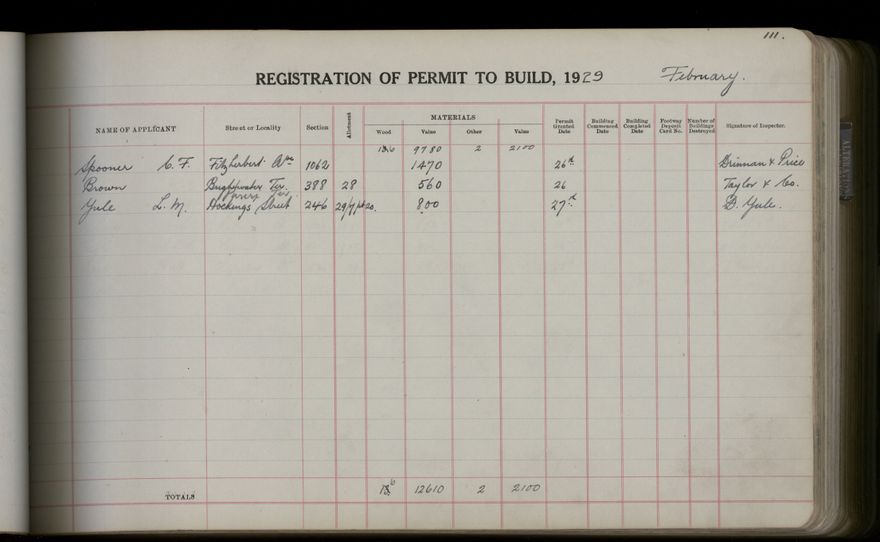 111.
REGISTRATION OF PERMIT TO BUILD, 1929 February.
NAME OF APPLICANT Street or Locality Section Allotment MATERIALS Wood Value Other Value Permit Granted Date Building Commenced Date Building Completed Date Footway Deposit Card No. Number of Buildings Destroyed Signature of Inspector.
9780 2 2100
Spooner C. F. Fitzherbert Ave 1062 1470 26th Drinnan & Price
Brown Brightwater Ter. 388 28 560 26 Taylor & Co.
Yule L. M. Hockings Street 246 800 27th D. Yule.
TOTALS 12610 2 2100